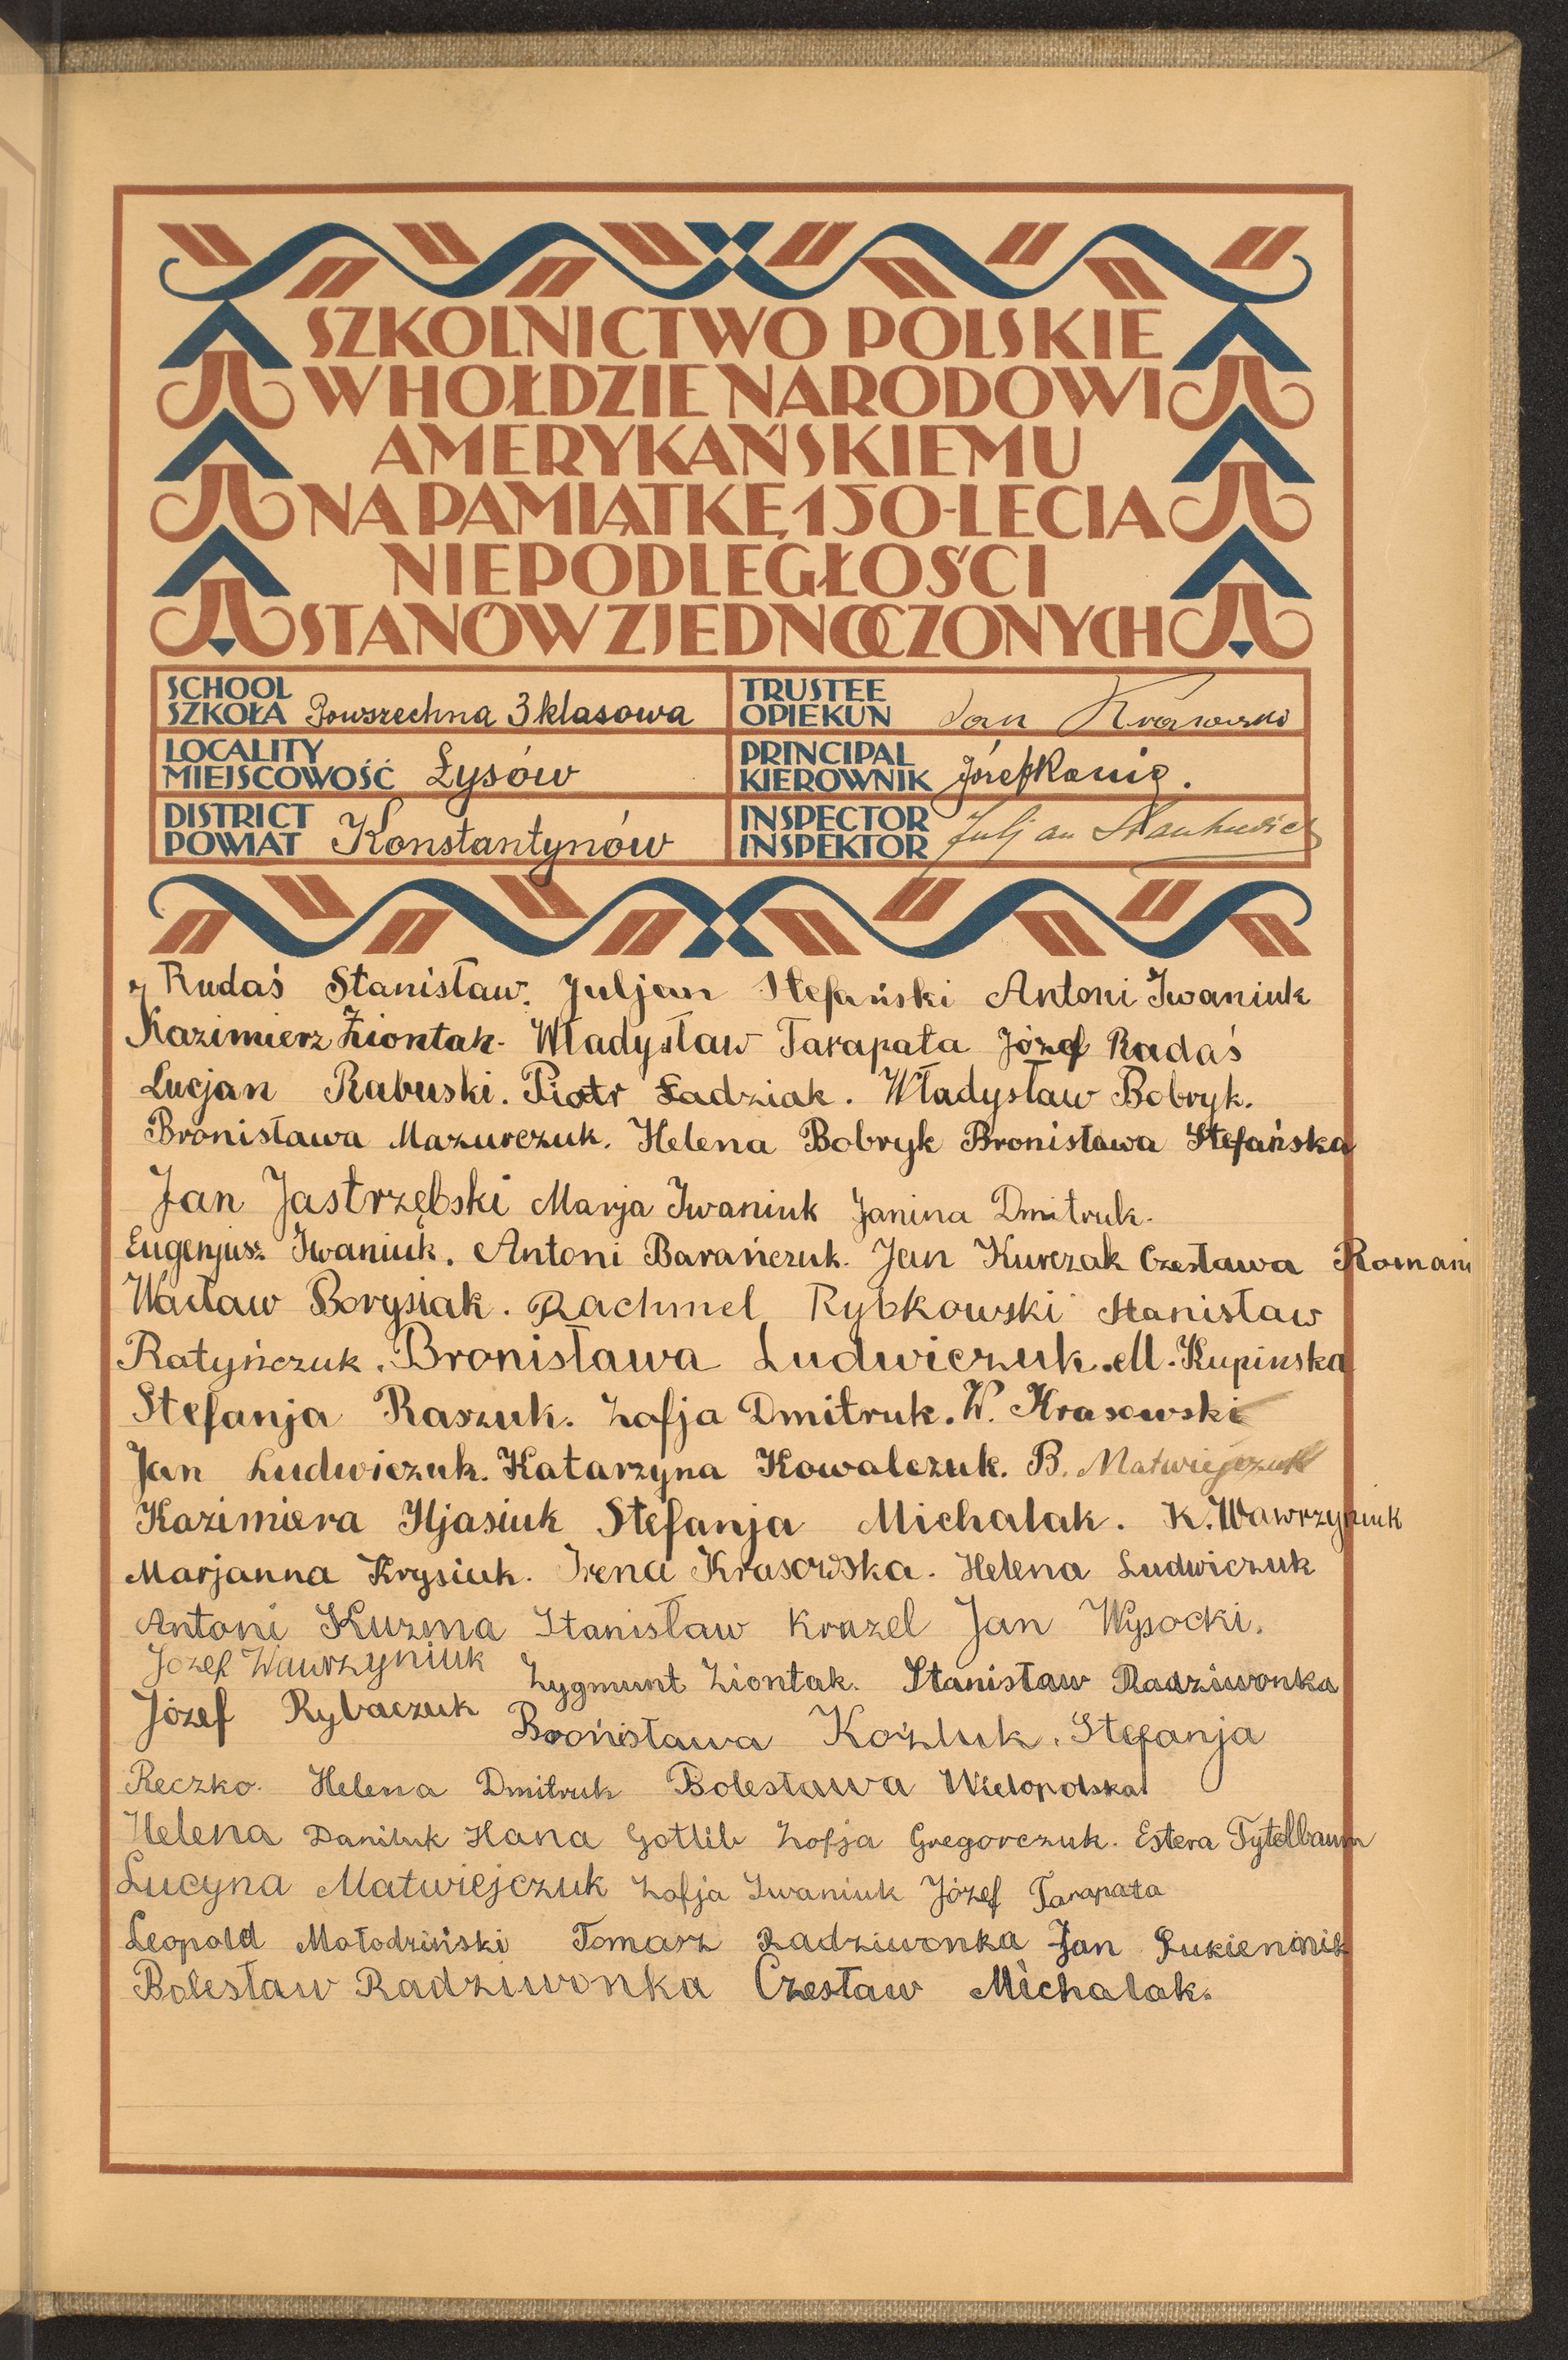 SZKOLNICTWO POLSKIE
W HOŁDZIE NARODOWI
AMERYKAŃSKIEMU
NA PAMIĄTKĘ 150-LECIA
NIEPODLEGŁOŚCI
STANÓW ZJEDNOCZONYCH
SCHOOL
SZKOŁA Powszechna 3 klasowa
TRUSTEE
OPIEKUN Jan Krasowski
LOCALITY
MIEJSCOWOŚĆ Łysów
PRINCIPAL
KIEROWNIK Józef Konig.
DISTRICT
POWIAT Konstantynów
INSPECTOR
INSPEKTOR Juljan
Rudaś Stanisław. Juljan Stefański Antoni Iwaniuk
Kazimierz Ziontak. Władysław Tarapata Józef Radaś
Lucjan Rabuski. Piotr Ładziak. Władysław Bobryk.
Bronisława Mazurczuk. Helena Bobryk Bronisława Stefańska
Jan Jastrzębski Marja Iwaniuk Janina Dmitruk.
Eugenjusz Iwaniuk. Antoni Barańczuk. Jan Kurczak Czesława Romani
Wacław Borysiak. Rachmel Rybkowski Stanisław
Ratyńczuk. Bronisława Ludwiczuk. M. Kupinska
Stefanja Raszuk. Zofja Dmitruk. W. Krasowski
Jan Ludwiczuk. Katarzyna Kowalczuk. B. Matwiejczuk
Kazimiera Iljasiuk Stefanja Michalak. K. Wawrzyniuk
Marjanna Krysiuk. Irena Krasowska. Helena Ludwiczuk
Antoni Kuzma Stanisław Krazel Jan Wysocki.
Józef Wawrzyniuk Zygmunt Ziontak. Stanisław Radziwonka
Józef Rybaczuk Bronisława Koźluk. Stefanja
Reczko. Helena Dmitruk Bolesława Wielopolska
Helena Daniluk Hana Gotlib Zofja Gregorczuk. Estera Tytelbaum
Lucyna Matwiejczuk Zofja Iwaniuk Józef Tarapata
Leopold Mołodziński Tomasz Radziwonka Jan
Bolesław Radziwonka Czesław Michalak.